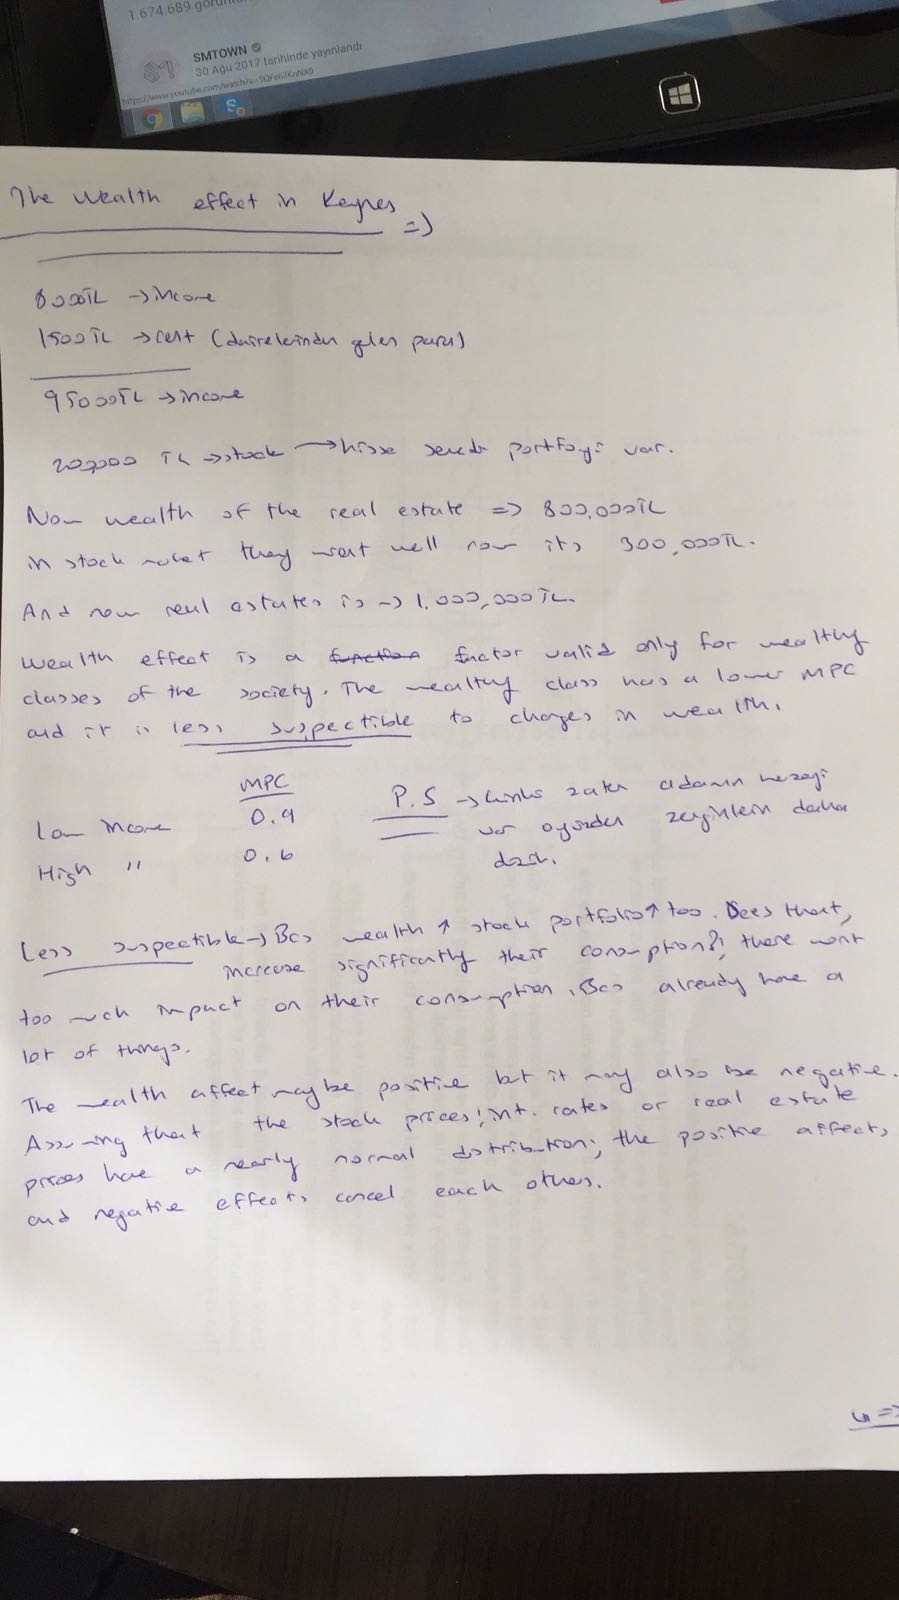 1 674 689
SMTOWN
30 Ağu 2017 tarihinde yayınlandı
The wealth effect in Keynes =>
8000TL → income
1500TL → rent (dairelerinden gelen para)
95000TL → income
200,000 TL → stock → hisse senedi portföyü var.
Now wealth of the real estate => 800,000TL
in stock market they went well now its 300,000TL.
And now real estates is → 1,000,000TL.
Wealth effect is a function factor valid only for wealthy
classes of the society. The wealthy class has a lower MPC
and it is less suspectible to changes in wealth.
MPC
Low income 0.9
High " 0.6
P.S → zaten adamın
var o yüzden zenginlerin daha
Less suspectible → Bcs wealth ↑ stock portfolio ↑ too. Does that,
increase significantly their consumption?; there wont
too much impact on their consumption. Bcs already have a
lot of things.
The wealth affect maybe positive but it may also be negative.
Assuming that the stock prices; int. rates or real estate
prices have a nearly normal distribution; the positive affects
and negative effects cancel each others.